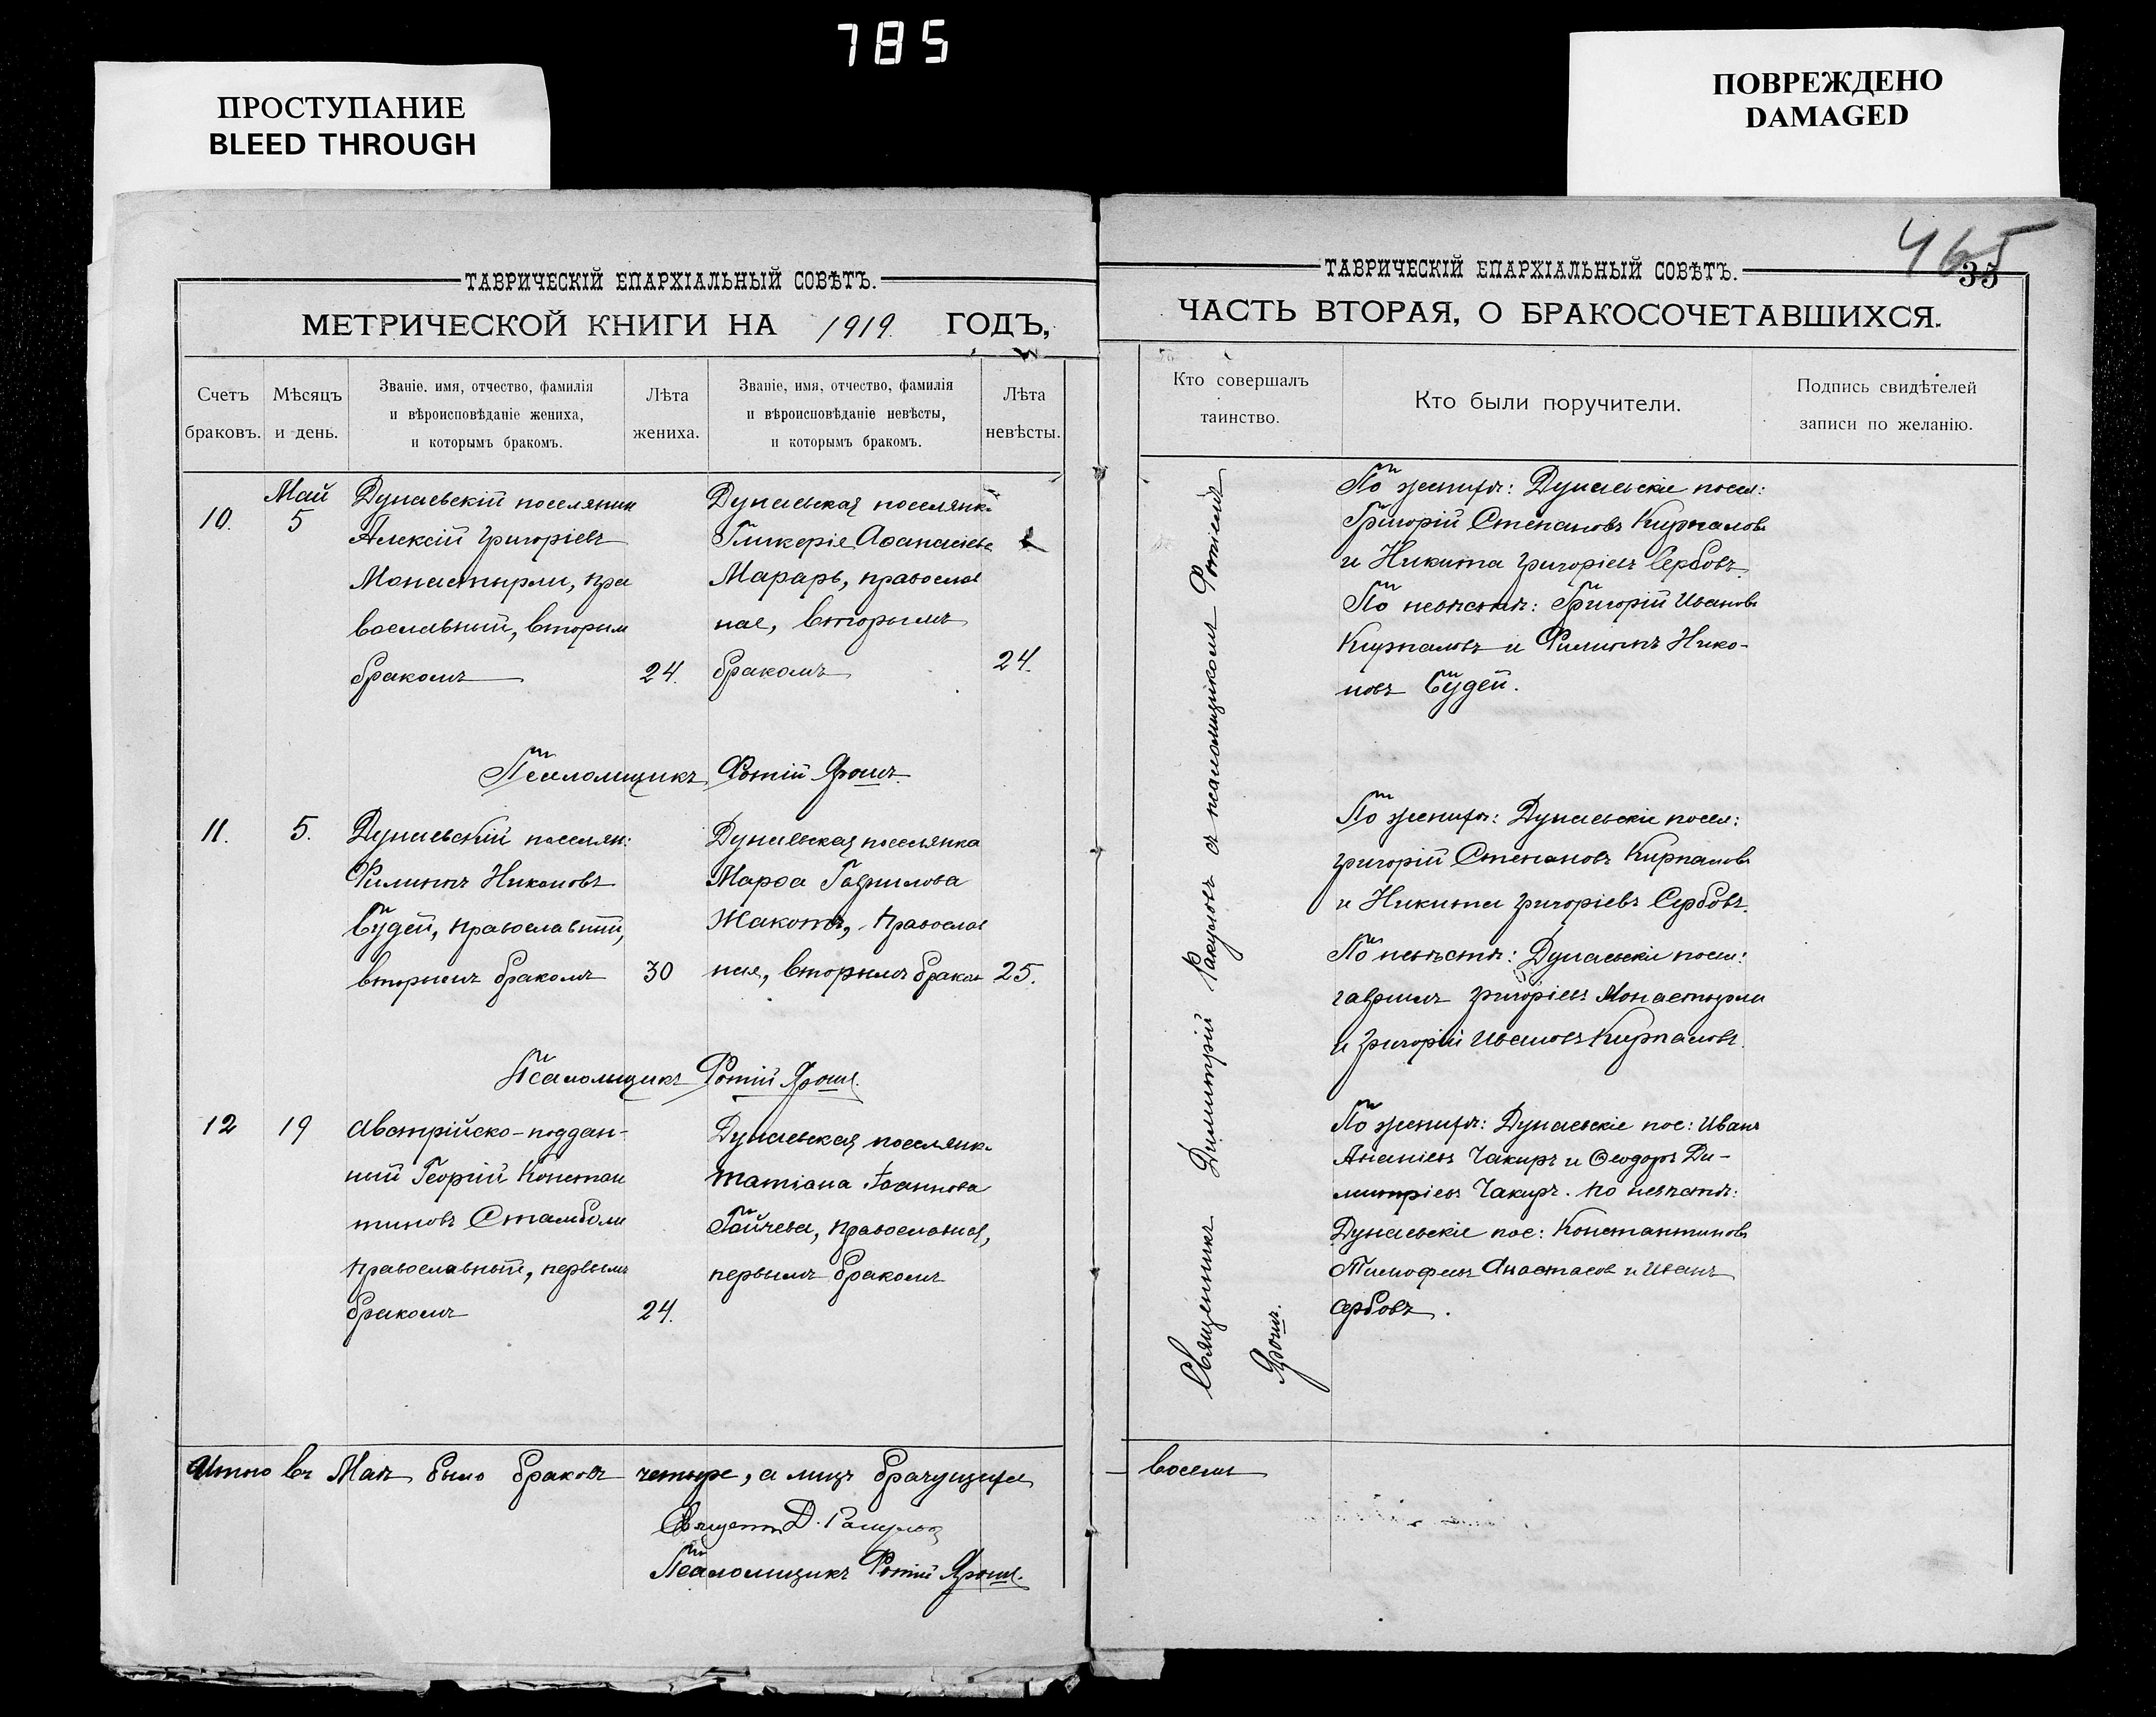 785
ПРОСТУПАНИЕ
BLEED THROUGH
ПОВРЕЖДЕНО
DAMAGED
ТАВРИЧЕСКІЙ ЕПАРХІАЛЬНЫЙ СОВѢТЪ.
МЕТРИЧЕСКОЙ КНИГИ НА 1919 ГОДЪ,
Счетъ браковъ.
Мѣсяцъ и день.
Званіе, имя, отчество, фамилія
и вѣроисповѣданіе жениха,
и которымъ бракомъ.
Лѣта жениха.
Званіе, имя, отчество, фамилія
и вѣроисповѣданіе невѣсты,
и которымъ бракомъ.
Лѣта невѣсты.
10.
Май
5
Дунаевскій поселянин
Алексій Григоріевъ
Монастырли, пра
вославный, вторым
бракомъ
24.
Дунаевская поселянк.
Гликерія Аѳанасіева
Марарь, православ
ная, вторымъ
бракомъ
24.
Псаломщикъ Фотій Ярошъ.
11.
5.
Дунаевскій поселян:
Филиппъ Никоновъ
Будей, православный,
вторымъ бракомъ
30
Дунаевская поселянка
Марѳа Гавриилова
Жакотъ, православ
ная, вторымъ браком
25.
Псаломщикъ Фотій Ярошъ.
12
19
Австрійско-поддан-
ный Георгій Констан
тиновъ Стамболи
православный, первымъ
бракомъ
24.
Дунаевская поселянк.
Татіана Іоаннова
Гайчева, православная,
первымъ бракомъ
Итого въ Маѣ было браковъ четыре, а лицъ брачущихся
Священ. Д.
Псаломщикъ Фотій Ярошъ.
465
35
ТАВРИЧЕСКІЙ ЕПАРХІАЛЬНЫЙ СОВѢТЪ.
ЧАСТЬ ВТОРАЯ, О БРАКОСОЧЕТАВШИХСЯ.
Кто совершалъ
таинство.
Кто были поручители.
Подпись свидѣтелей
записи по желанію.
Священникъ Димитрій Ракуловъ съ псаломщикомъ Фотіемъ
Ярошъ.
По женихѣ: Дунаевскіе посел:
Григорій Степановъ Кирпаловъ
и Никита Григоріевъ Сербовъ.
По невѣстѣ: Григорій Ивановъ
Кирпаловъ и Филиппъ Нико-
новъ Будей.
По женихѣ: Дунаевскіе посел:
Григорій Степановъ Кирпаловъ
и Никита Григоріевъ Сербовъ.
По невѣстѣ: Дунаевскіе посел:
Гавриилъ Григоріевъ Монастырли
и Григорій Ивановъ Кирпаловъ.
По женихѣ: Дунаевскіе пос: Иванъ
Ананіевъ Чакиръ и Ѳеодоръ Ди-
митріевъ Чакиръ. По невѣстѣ:
Дунаевскіе пос: Константиновъ
Тимофеевъ Анастасов и Иванъ
Сербовъ.
восемь